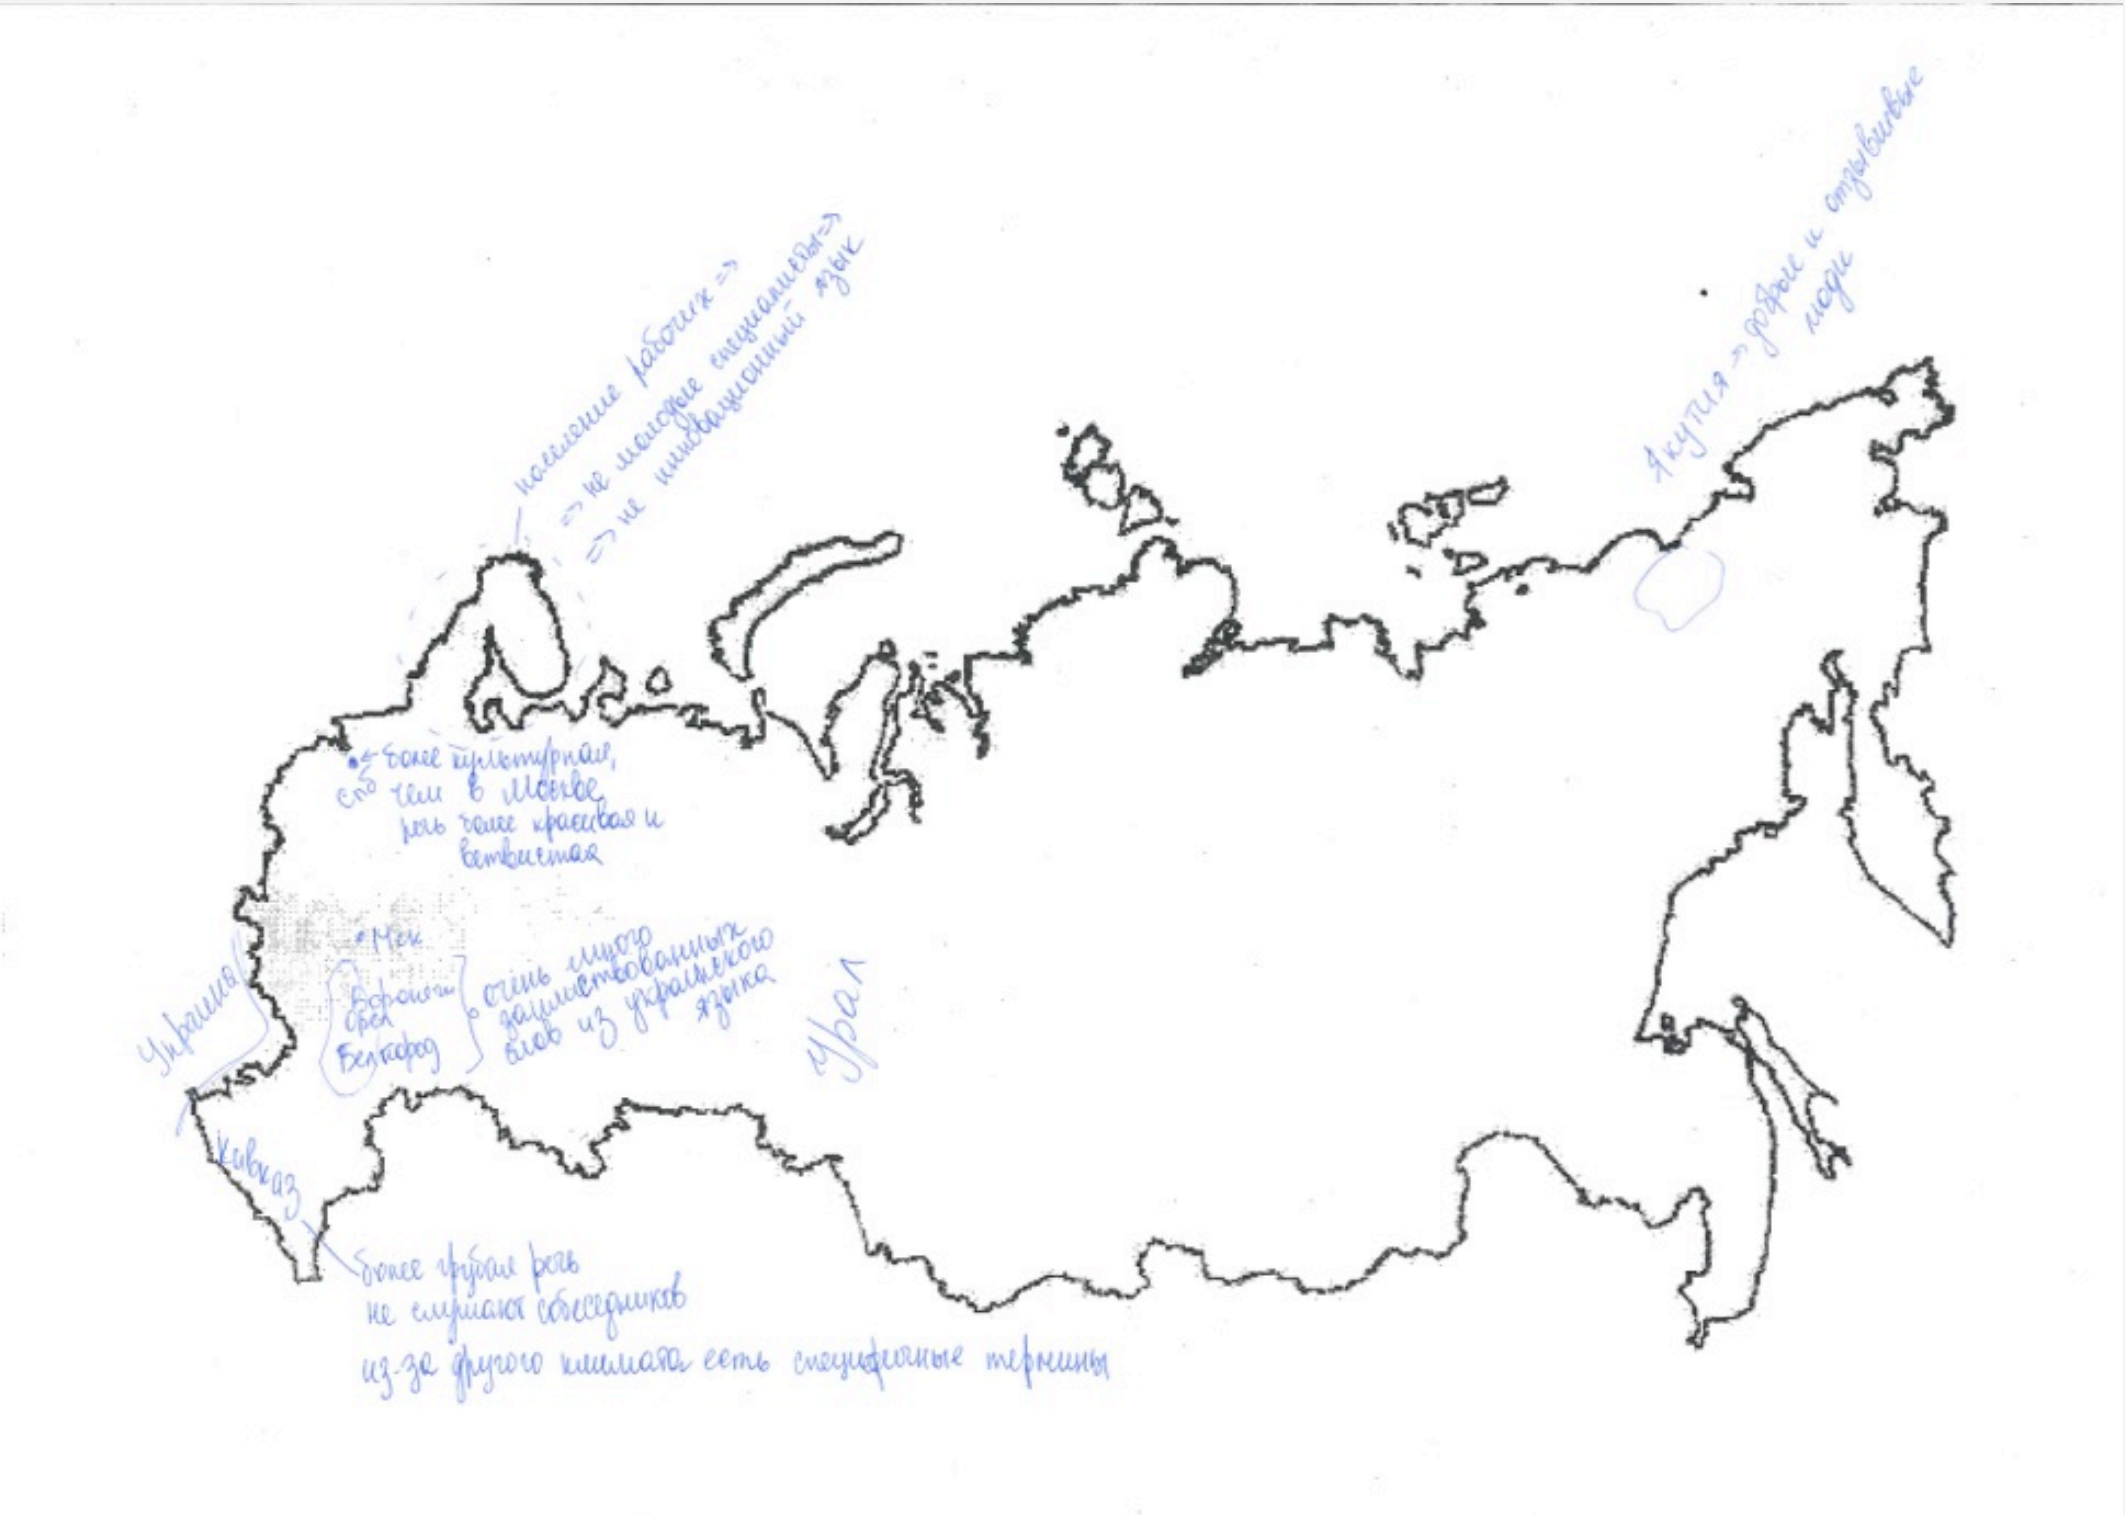 население рабочих =>
=> не молодые специалисты =>
=> не инновационный язык
Якутия => добрые и отзывчивые
люди
СПб
← более культурная,
чем в Москве,
речь более красивая и
ветвистая
Мск
Украина
Воронеж
Орел
Белгород
очень много
заимствованных
слов из украинского
языка
Урал
Кавказ
более грубая речь
не слушают собеседников
из-за другого климата есть специфичные термины